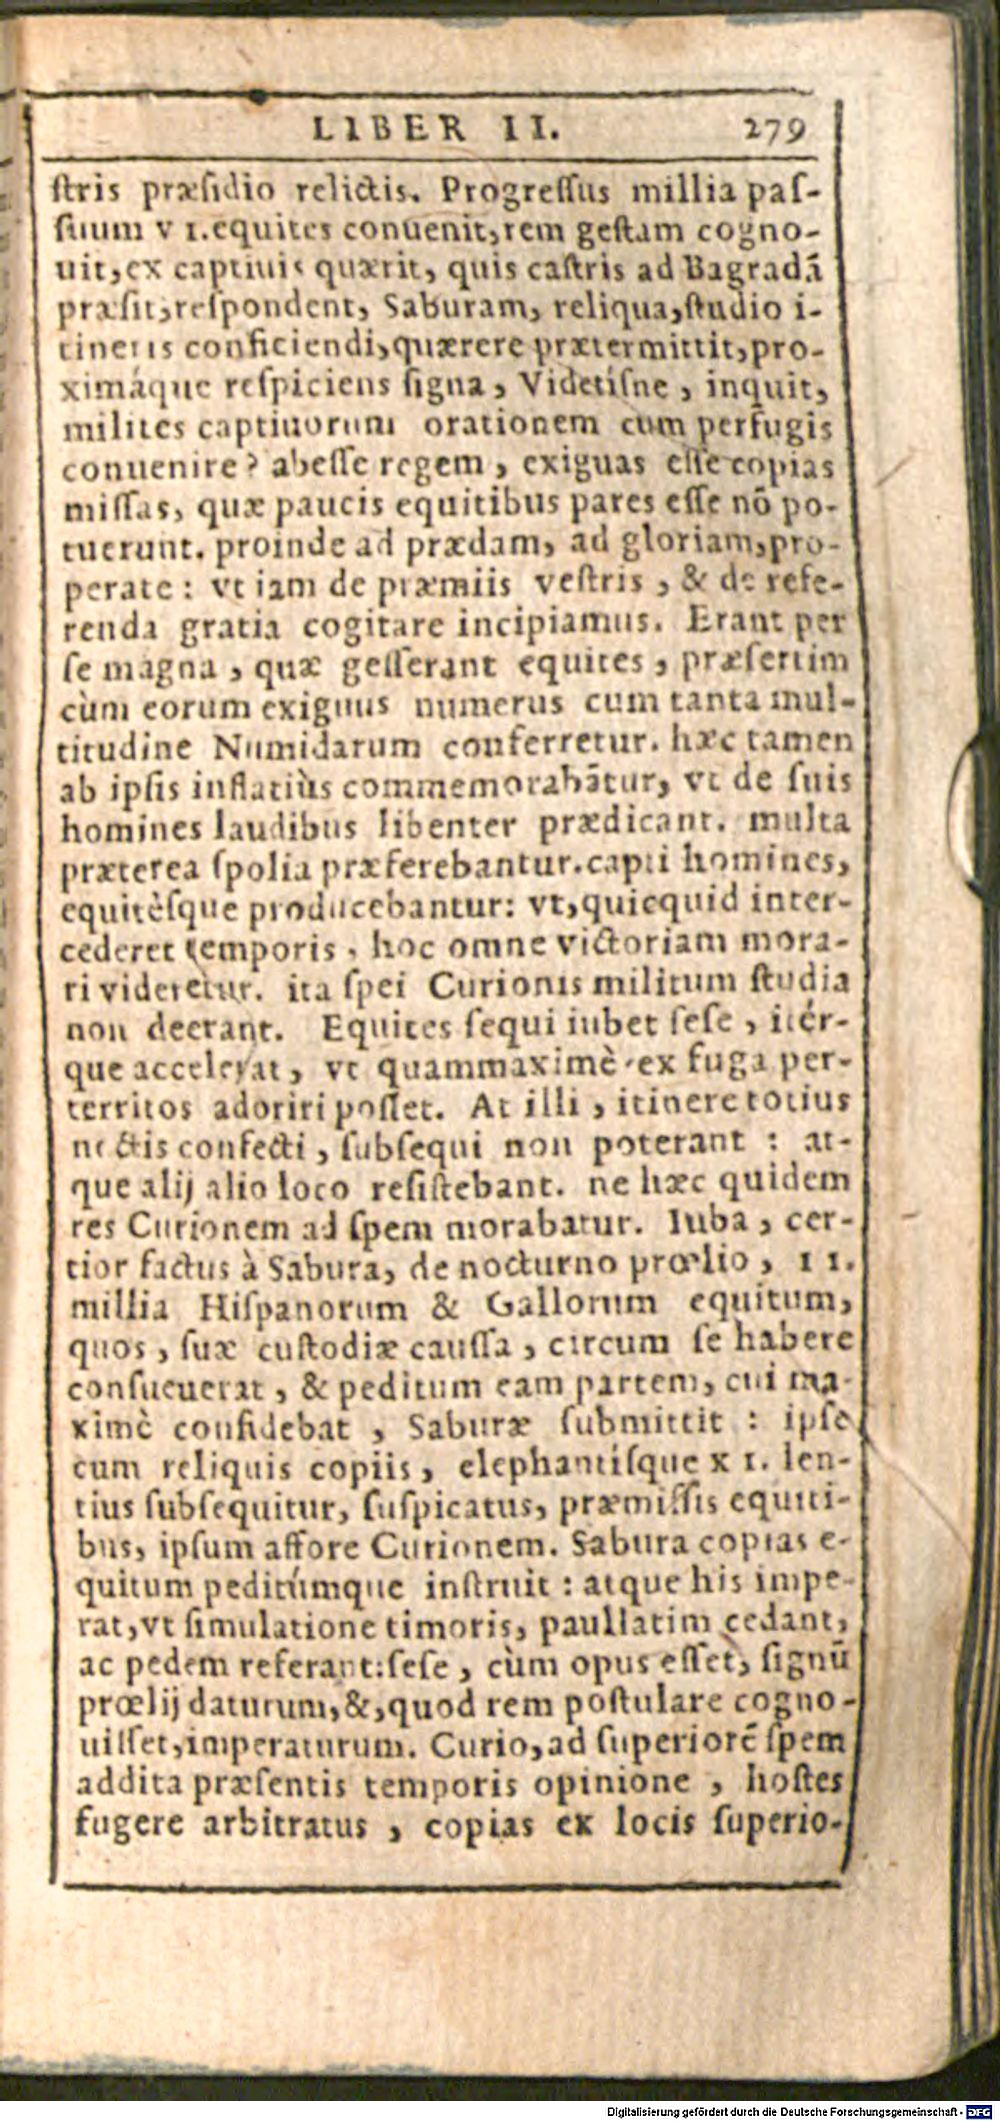 LIBER II. 279
ſtris præſidio relictis. Progreſſus millia paſ-
ſuum VI. equites conuenit, rem geſtam cogno-
uit, ex captiuis quærit, quis caſtris ad Bagradā
præſit, reſpondent, Saburam, reliqua, ſtudio i-
tineris conficiendi, quærere prætermittit, pro-
ximáque reſpiciens ſigna, Videtiſne, inquit,
milites captiuorum orationem cum perfugis
conuenire? abeſſe regem, exiguas eſſe copias
miſſas, quæ paucis equitibus pares eſſe nō po-
tuerunt. proinde ad prædam, ad gloriam, pro-
perate: vt iam de præmiis veſtris, & de refe-
renda gratia cogitare incipiamus. Erant per
ſe magna, quæ geſſerant equites, præſertim
cùm eorum exiguus numerus cum tanta mul-
titudine Numidarum conferretur. hæc tamen
ab ipſis inflatiùs commemorabātur, vt de ſuis
homines laudibus libenter prædicant. multa
præterea ſpolia præferebantur. capti homines,
equitèſque producebantur: vt, quicquid inter-
cederet temporis, hoc omne victoriam mora-
ri videretur. ita ſpei Curionis militum ſtudia
non deerant. Equites ſequi iubet ſeſe, itér-
que accelerat, vt quammaximè ex fuga per-
territos adoriri poſſet. At illi, itinere totius
noctis confecti, ſubſequi non poterant: at-
que alij alio loco reſiſtebant. ne hæc quidem
res Curionem ad ſpem morabatur. Iuba, cer-
tior factus à Sabura, de nocturno prœlio, II.
millia Hiſpanorum & Gallorum equitum,
quos, ſuæ cuſtodiæ cauſſa, circum ſe habere
conſueuerat, & peditum eam partem, cui ma-
ximè confidebat, Saburæ ſubmittit: ipſe
cum reliquis copiis, elephantiſque XI. len-
tius ſubſequitur, ſuſpicatus, præmiſſis equiti-
bus, ipſum affore Curionem. Sabura copias e-
quitum peditúmque inſtruit: atque his impe-
rat, vt ſimulatione timoris, paullatim cedant,
ac pedem referant: ſeſe, cùm opus eſſet, ſignū
prœlij daturum, &, quod rem poſtulare cogno-
uiſſet, imperaturum. Curio, ad ſuperiorē ſpem
addita præſentis temporis opinione, hoſtes
fugere arbitratus, copias ex locis ſuperio-
Digitalisierung gefördert durch die Deutsche Forschungsgemeinschaft - DFG